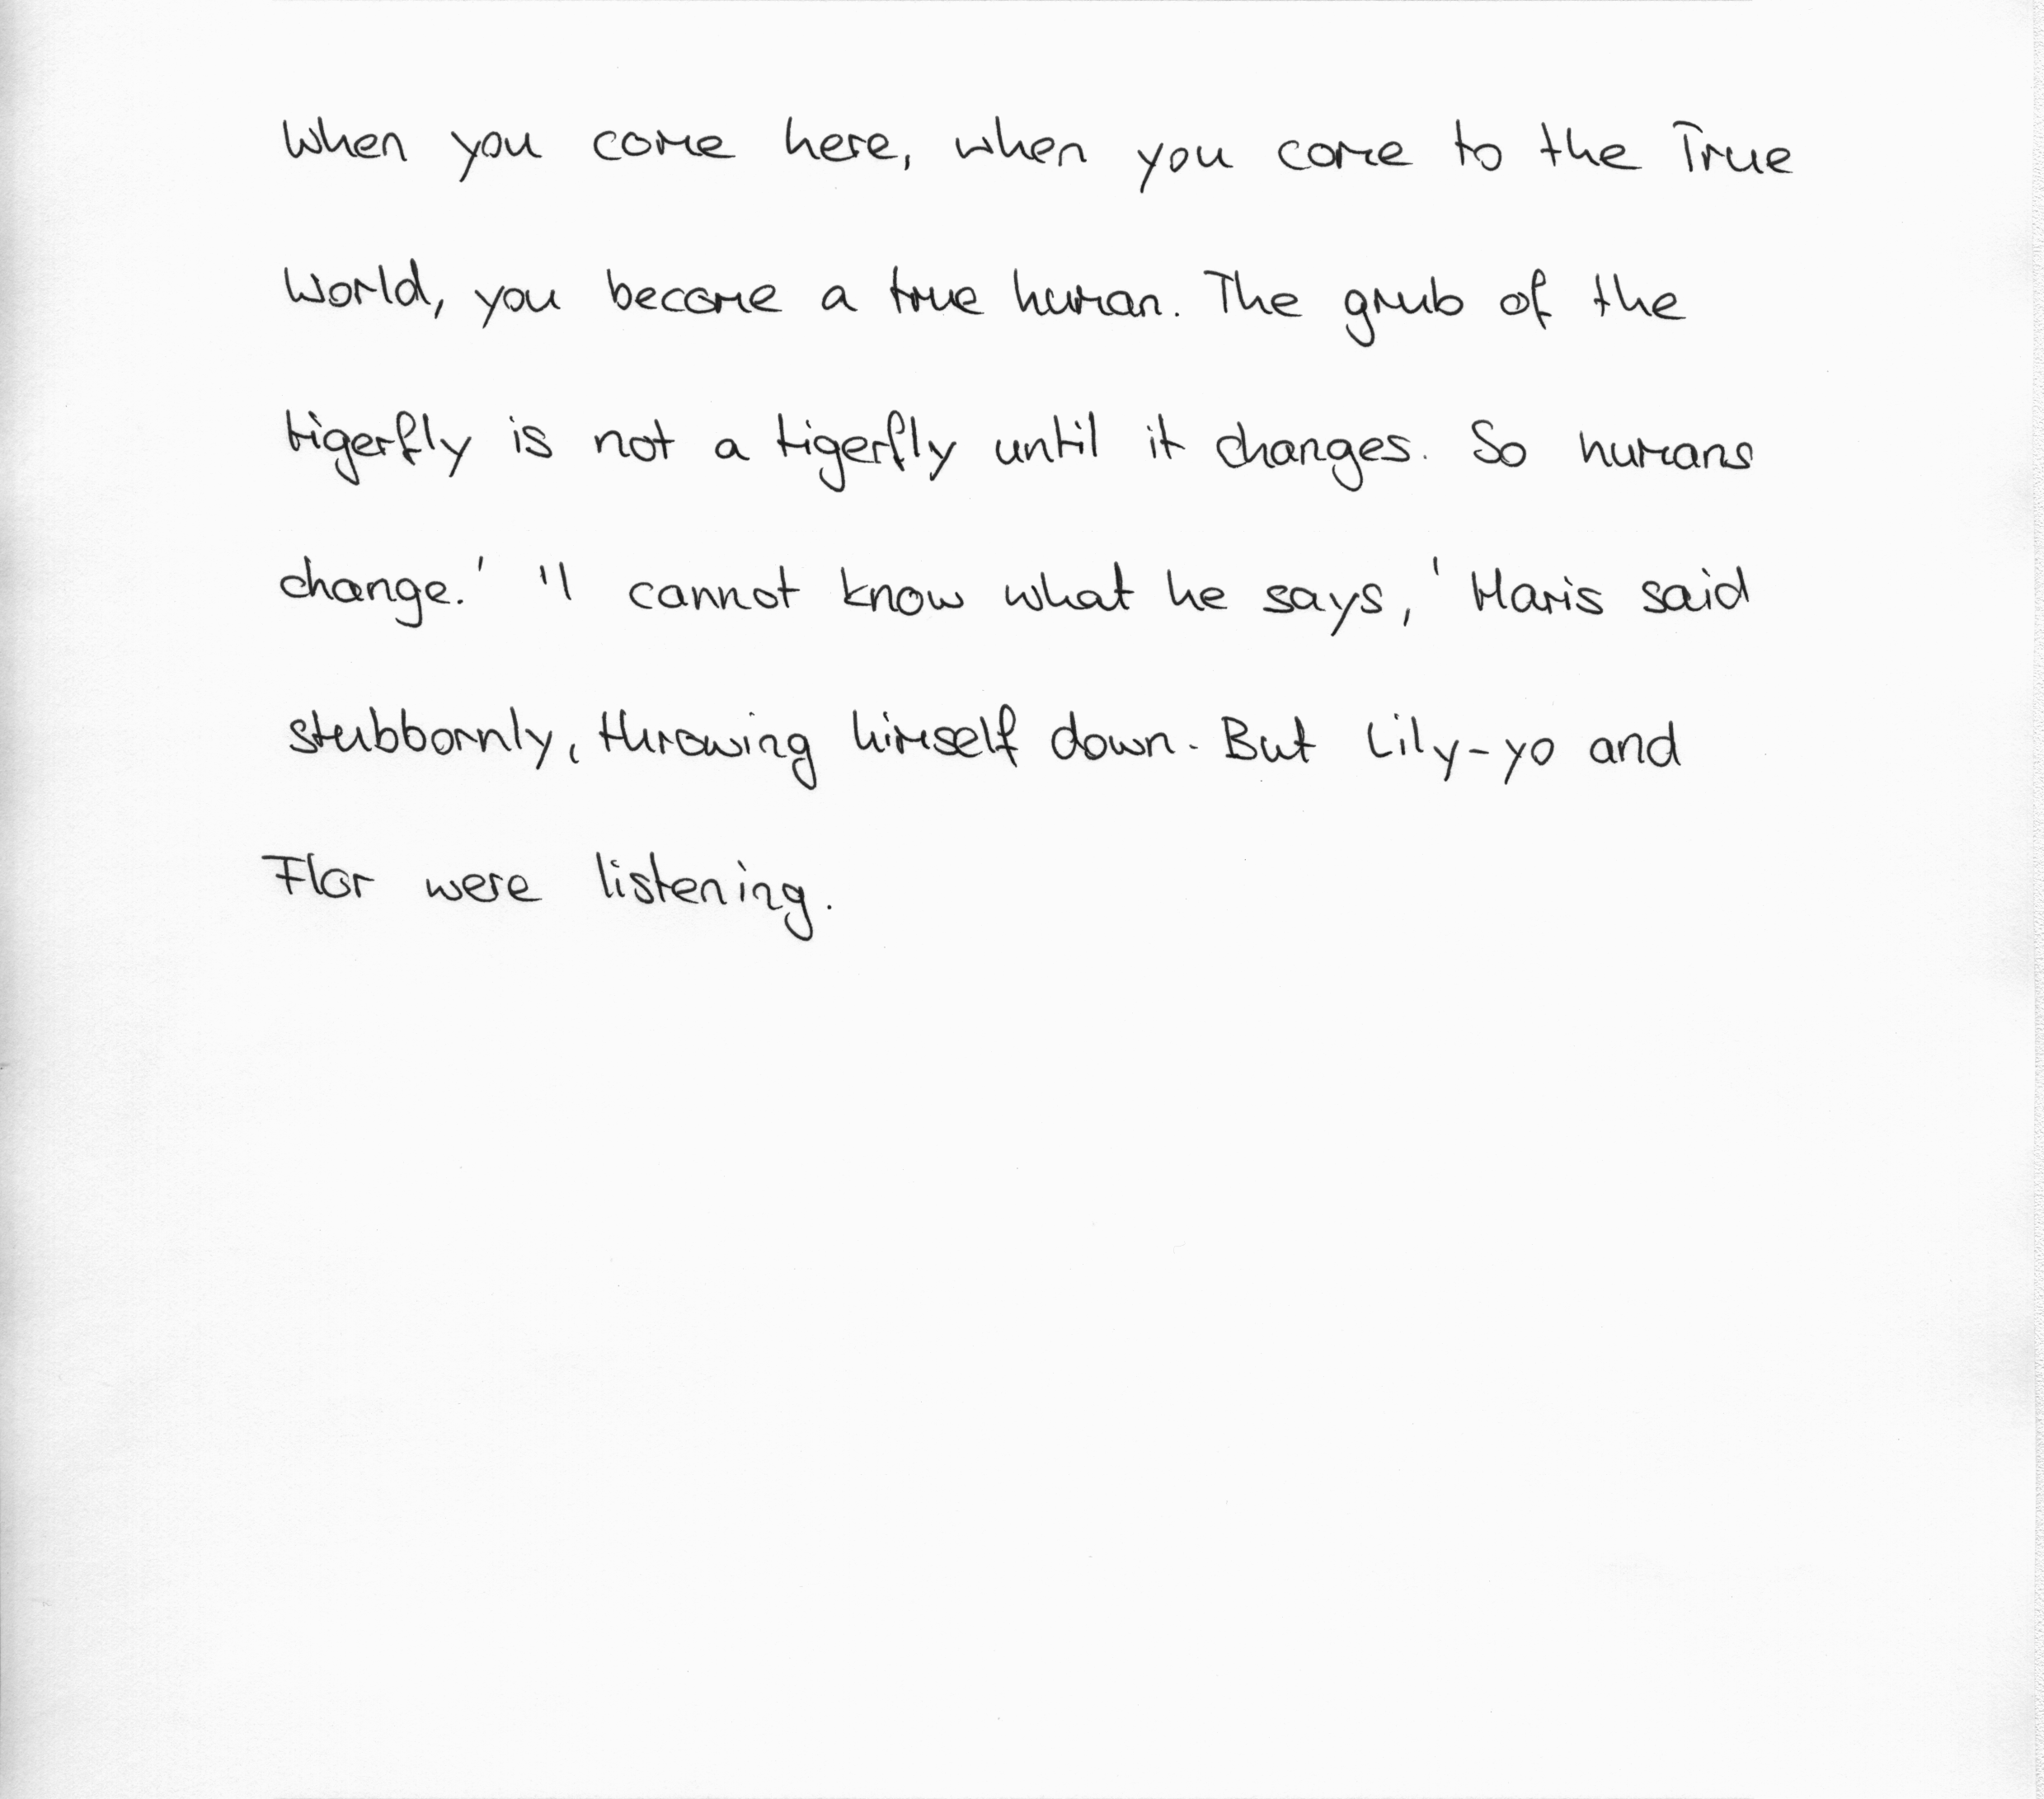 When you come here, when you come to the True
World, you become a true human. The grub of the
tigerfly is not a tigerfly until it changes. So humans
change.' 'I cannot know what he says,' Haris said
stubbornly, throwing himself down. But Lily-yo and
Flor were listening.